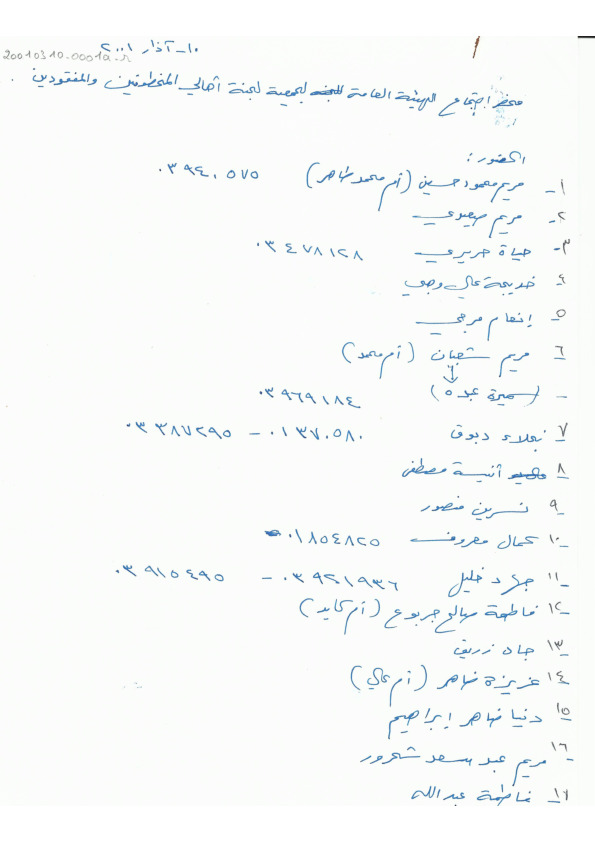 ١٠ـ آذار ٢٠٠١
20010310-0001a-r
محضر اجتماع الهيئة العامة لجمعية لجنة أهالي المخطوفين والمفقودين .
الحضور :
١ـ مريم محمود حسين (أم محمد طاهر) ٠٣٩٤٠٥٧٥
٢ـ مريم صعيدي
٣ـ حياة حريري ٠٣٤٧٨١٢٨
٤ـ خديجة علي وهبي
٥ـ إنعام مرعي
٦ـ مريم شعبان (أم محمد)
ـ (سميرة عبده) ٠٣٩٦٩١٨٤
٧ـ نجلاء دبوق ٠١٣٧٠٥٨٠ ـ ٠٣٣٨٧٢٩٥
٨ـ أنيسة مصطفى
٩ـ نسرين منصور
١٠ـ كمال معروف ٠١٨٥٤٨٢٥
١١ـ جهاد خليل ٠٣٩٢١٩٣٦ ـ ٠٣٩١٥٤٩٥
١٢ـ فاطمة صالح جربوع (أم كايد)
١٣ـ جاد زريق
١٤ـ عزيزة ضاهر (أم علي)
١٥ـ دنيا ضاهر إبراهيم
١٦ـ مريم عبد سعد شحرور
١٧ـ فاطمة عبدالله